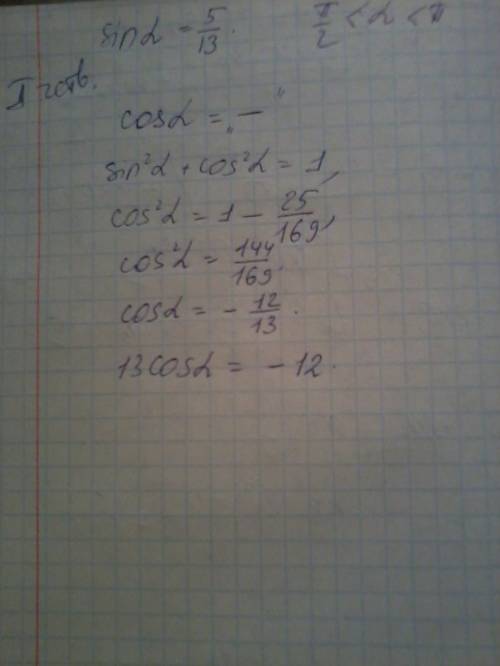 sinα = 5/13. π/2 < α < π
II четв.
cosα = „—"
sin²α + cos²α = 1,
cos²α = 1 - 25/169,
cos²α = 144/169,
cosα = - 12/13.
13cosα = - 12.